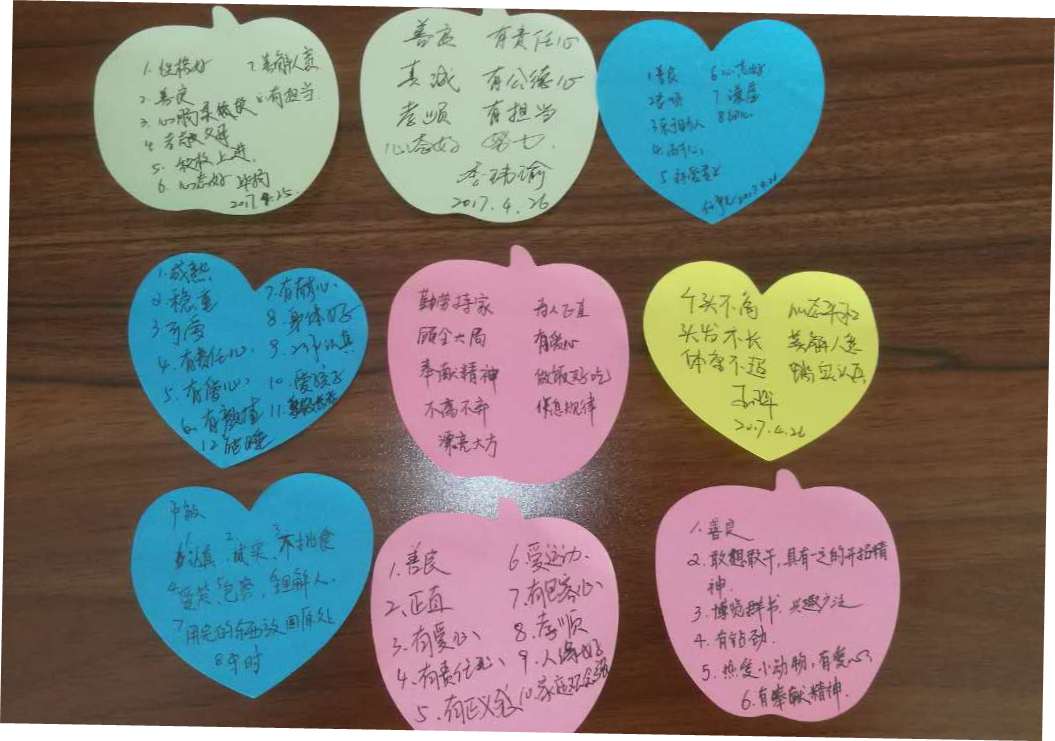 1. 性格好 7. 善解人意
2. 善良 8. 有担当
3. 心胸
4. 孝敬父母
5. 积极上进
6. 心态好
2017.4.25
善良 有责任心
真诚 有公德心
孝顺 有担当
心态好
李玮瑜
2017.4.26
1 善良 6 心态好
2 孝顺 7
3 乐于助人 8 细心
4.
5
2017.4.26
1. 成熟 7. 有耐心
2. 稳重 8. 身体好
3. 可爱 9.
4. 有责任心 10. 爱孩子
5. 有爱心 11.
6. 有颜值
12 能睡
勤劳持家 为人正直
顾全大局 有爱心
奉献精神 做饭好吃
不离不弃 作息规律
漂亮大方
个头不高 心态平和
头发不长 善解人意
体重不超 踏实认真
2017.4.26
1 认真 2 诚实 3 不挑食
4 5 包容 6 理解人
7 用完的东西放回原处
8 守时
1. 善良 6. 爱运动
2. 正直 7. 有包容心
3. 有爱心 8. 孝顺
4. 有责任心 9. 人缘好
5. 有正义感 10. 家庭
1. 善良
2. 敢想敢干,具有一定的开拓精
神.
3. 博览群书,兴趣广泛
4. 有钻劲.
5. 热爱小动物,有爱心
6. 有奉献精神.